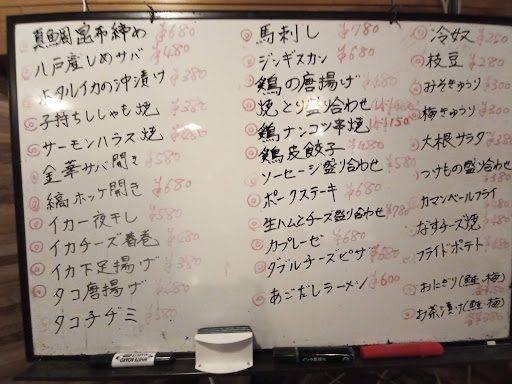 真鯛昆布締め ¥680
八戸産しめサバ ¥480
ホタルイカの沖漬け ¥380
子持ちししゃも焼 ¥380
サーモンハラス焼 ¥380
金華サバ開き ¥580
縞ホッケ開き ¥680
イカ一夜干し ¥580
イカチーズ春巻
イカ下足揚げ ¥380
タコ唐揚げ
タコチヂミ ¥580
馬刺し ¥780
ジンギスカン
鶏の唐揚げ
焼とり盛り合わせ
鶏ナンコツ串焼 ¥150
鶏皮餃子 ¥480
ソーセージ盛り合わせ ¥580
ポークステーキ ¥680
生ハムとチーズ盛り合わせ ¥780
カプレーゼ ¥680
ダブルチーズピザ
あごだしラーメン ¥600
冷奴 ¥250
枝豆 ¥280
みそきゅうり ¥300
梅きゅうり ¥300
大根サラダ ¥380
つけもの盛り合わせ ¥380
カマンベールフライ
なすチーズ焼 ¥480
フライドポテト
おにぎり(鮭、梅)
お茶漬け(鮭・梅)